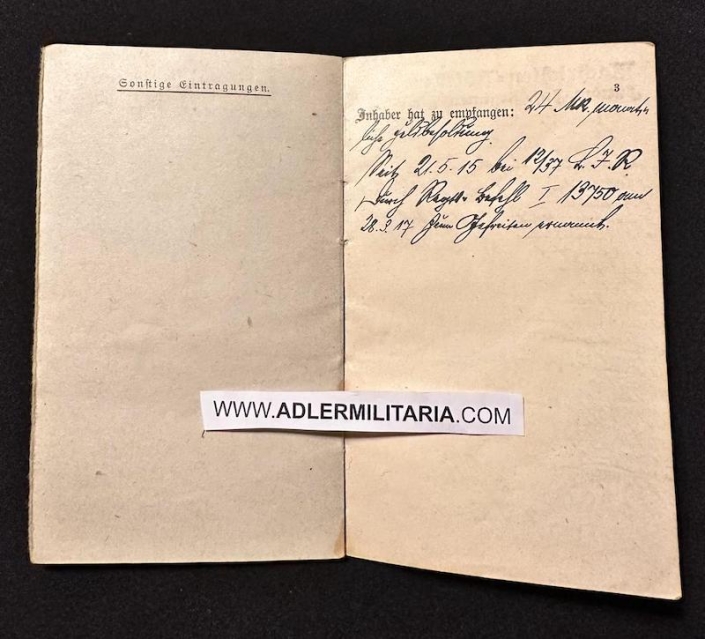 Sonstige Eintragungen.
3
Inhaber hat zu empfangen: 24 Mk. monat-
liche Geldbesoldung.
Seit 21.5.15 bei 12/37 L.I.R.
Durch Regts. Befehl I 13750 am
28.3.17 zum Gefreiten ernannt.
WWW.ADLERMILITARIA.COM